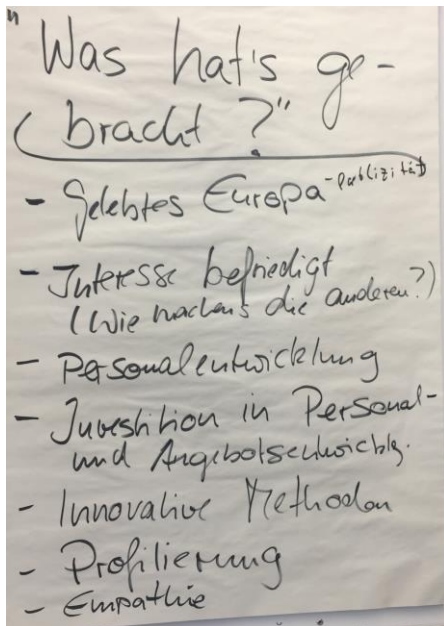 "Was hat's ge-
bracht?"
- Gelebtes Europa -publizität
- Interesse befriedigt
(Wie machen's die anderen?)
- Personalentwicklung
- Investition in Personal-
und Angebotsentwicklg.
- Innovative Methoden
- Profilierung
- Empathie